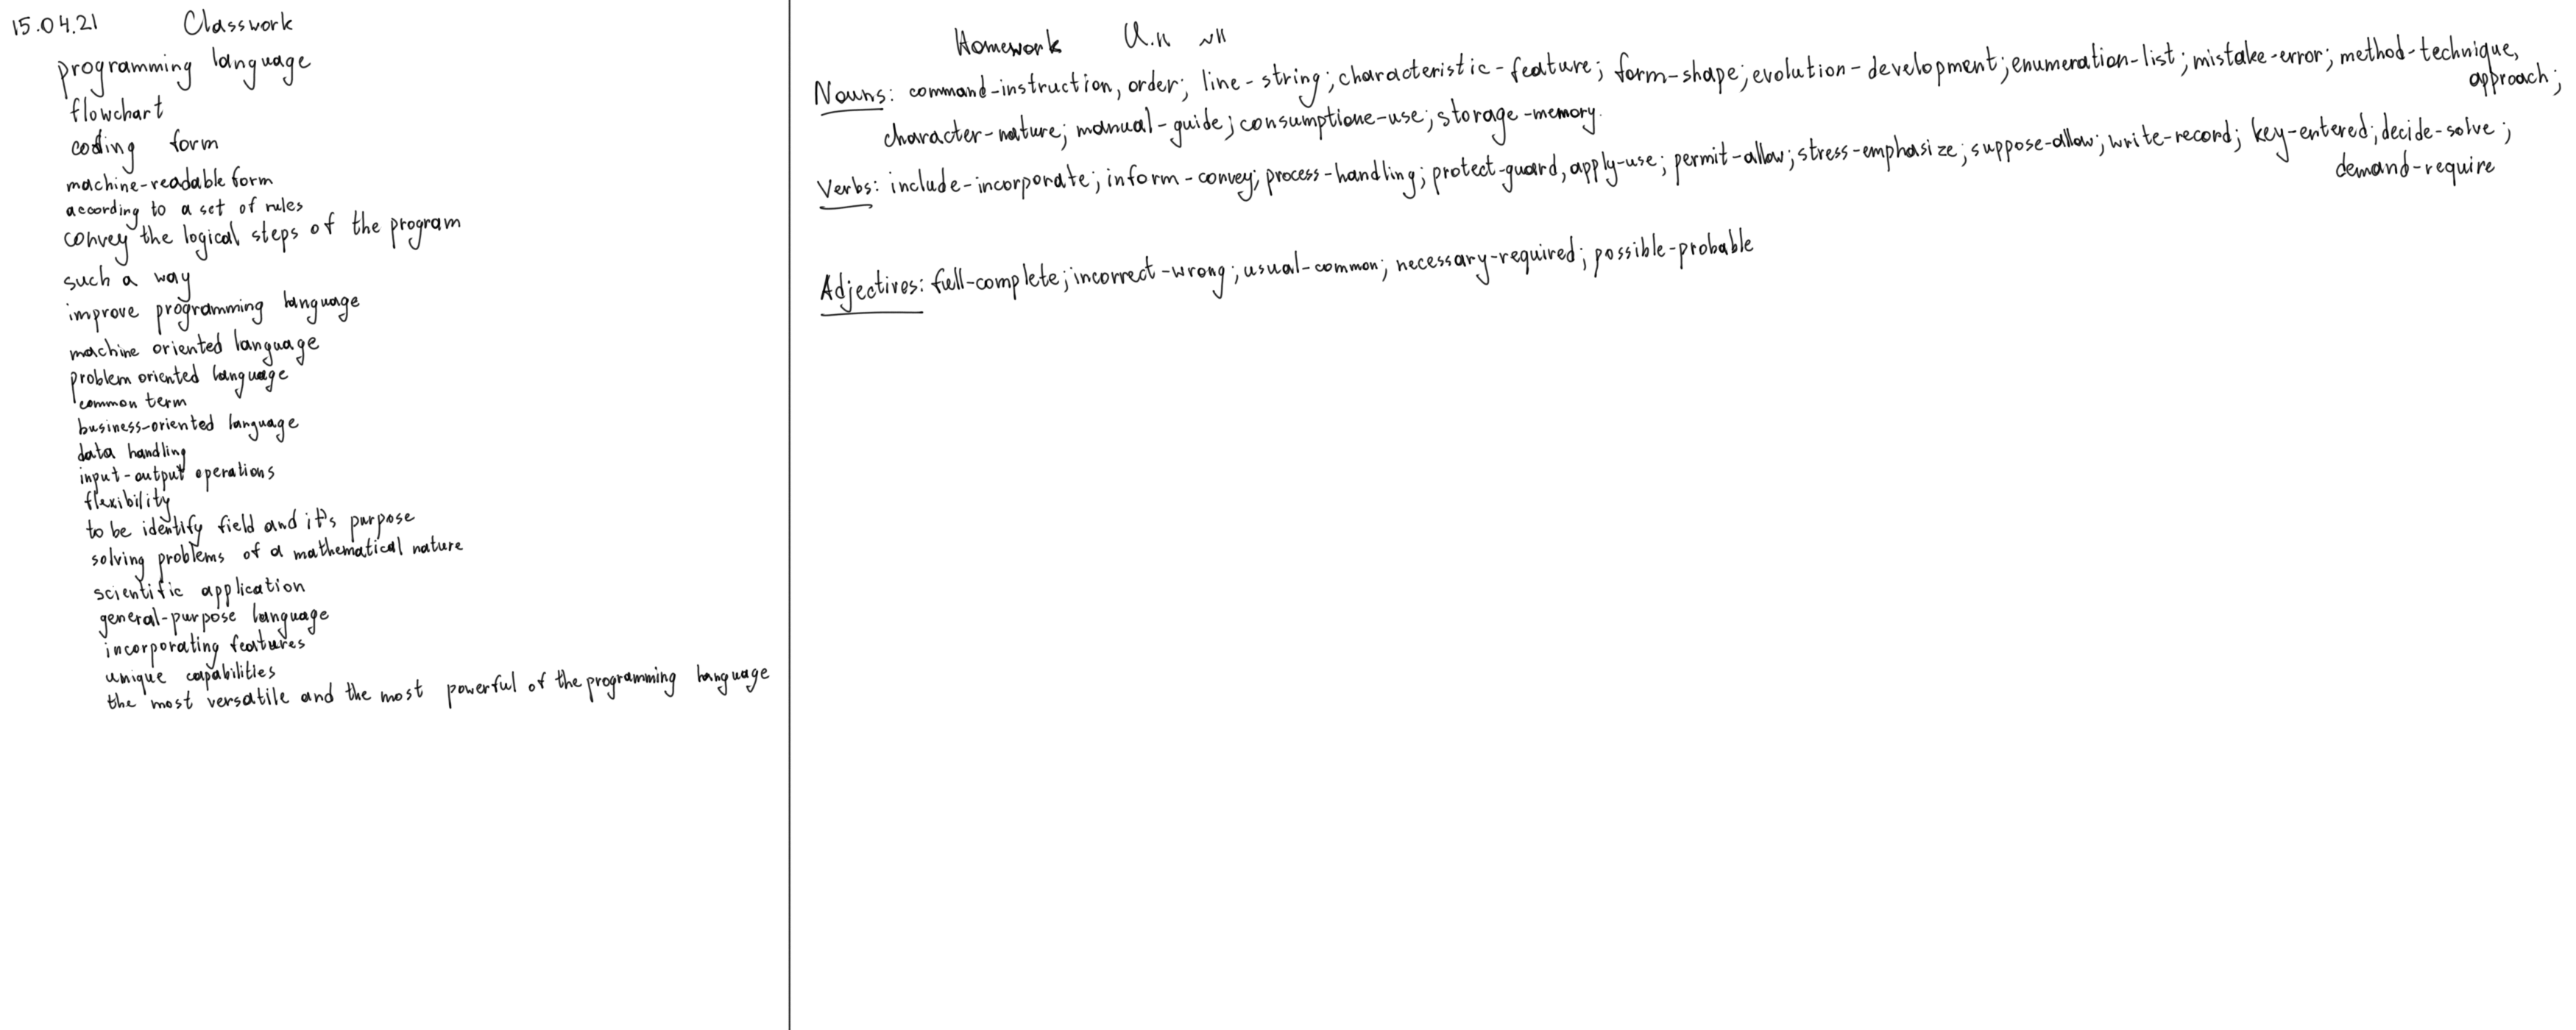 15.04.21 Classwork
programming language
flowchart
coding form
machine-readable form
according to a set of rules
convey the logical steps of the program
such a way
improve programming language
machine oriented language
problem oriented language
common term
business-oriented language
data handling
input-output operations
flexibility
to be identify field and it's purpose
solving problems of a mathematical nature
scientific application
general-purpose language
incorporating features
unique capabilities
the most versatile and the most powerful of the programming language
Homework
Nouns: command-instruction, order; line-string; characteristic-feature; form-shape; evolution-development; enumeration-list; mistake-error; method-technique,
approach;
character-nature; manual-guide; consumptione-use; storage-memory.
Verbs: include-incorporate; inform-convey; process-handling; protect-guard, apply-use; permit-allow; stress-emphasize; suppose-allow; write-record; key-entered; decide-solve;
demand-require
Adjectives: full-complete; incorrect-wrong; usual-common; necessary-required; possible-probable